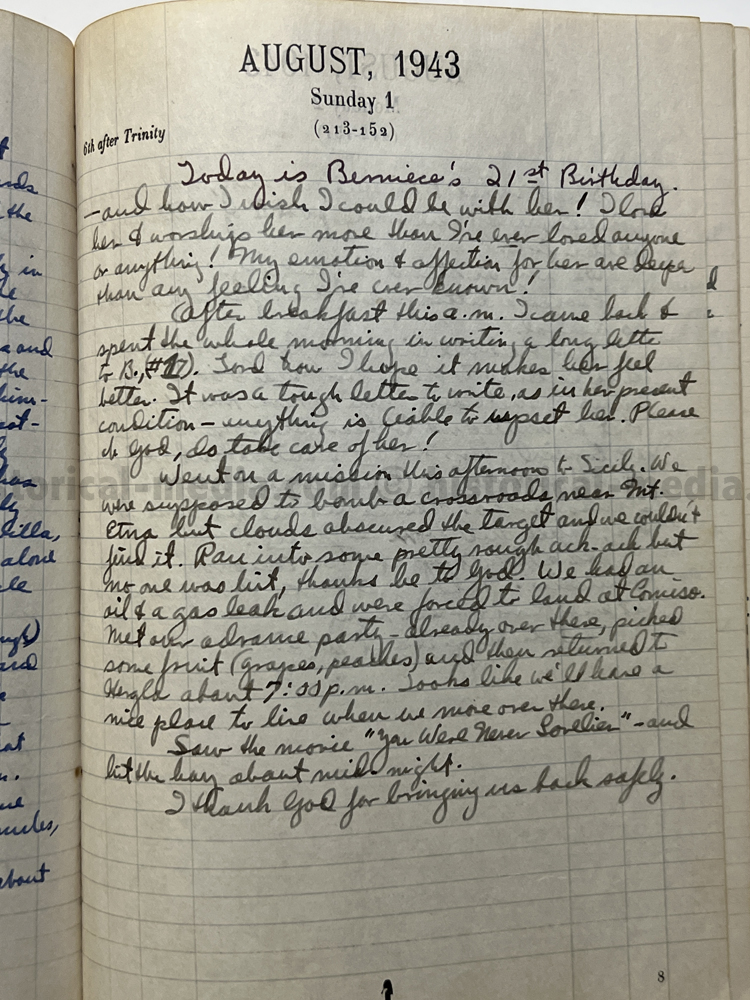 AUGUST, 1943
Sunday 1
(213-152)
6th after Trinity
Today is Berniece's 21st Birthday.
-and how I wish I could be with her! I love
her & worship her more than I've ever loved anyone
or anything! My emotion & affection for her are deeper
than any feeling I've ever known!
After breakfast this a.m. I came back &
spent the whole morning in writing a long letter
to B., (#17). Lord how I hope it makes her feel
better. It was a tough letter to write, as in her present
condition - anything is liable to upset her. Please
oh God, do take care of her!
Went on a mission this afternoon to Sicily. We
were supposed to bomb a crossroads near Mt.
Etna but clouds obscured the target and we couldn't
find it. Ran into some pretty rough ack-ack but
no one was hit, thanks be to God. We had an
oil & a gas leak and were forced to land at Comiso.
Met our advance party - already over there, picked
some fruit (grapes, peaches) and then returned to
Hergla about 7:00 p.m. Looks like we'll have a
nice place to live when we move over there.
Saw the movie "You Were Never Lovelier" - and
hit the hay about mid-night.
I thank God for bringing us back safely.
8
the
in
the
and
the
him-
has
alone
and
at
about